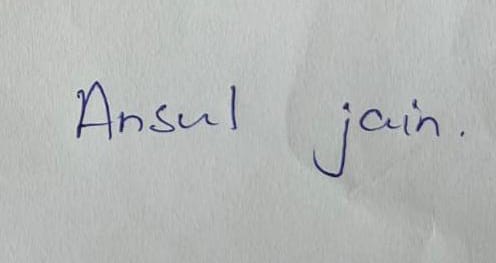 Ansul jain.